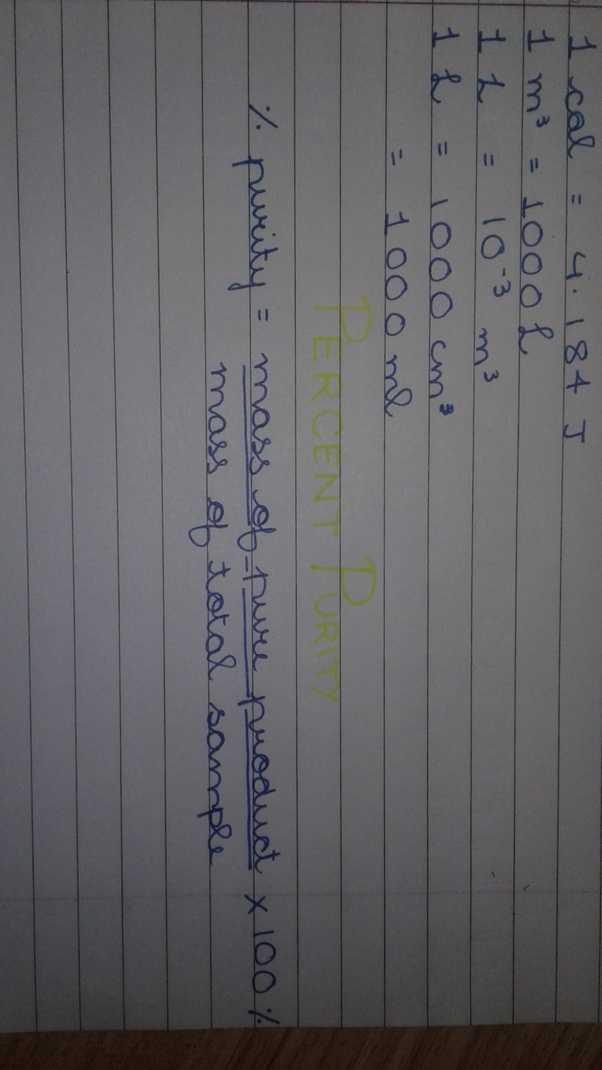 1 cal = 4.184 J
1 m³ = 1000 L
1 L = 10⁻³ m³
1 L = 1000 cm³
= 1000 ml
PERCENT PURITY
% purity = mass of pure product x 100 %
mass of total sample